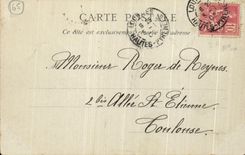 65
CARTE POSTALE
Ce côté est exclusivement
HAUTES-PYR
Monsieur Roger de Reynes
2 bis Allée St Etienne
Toulouse